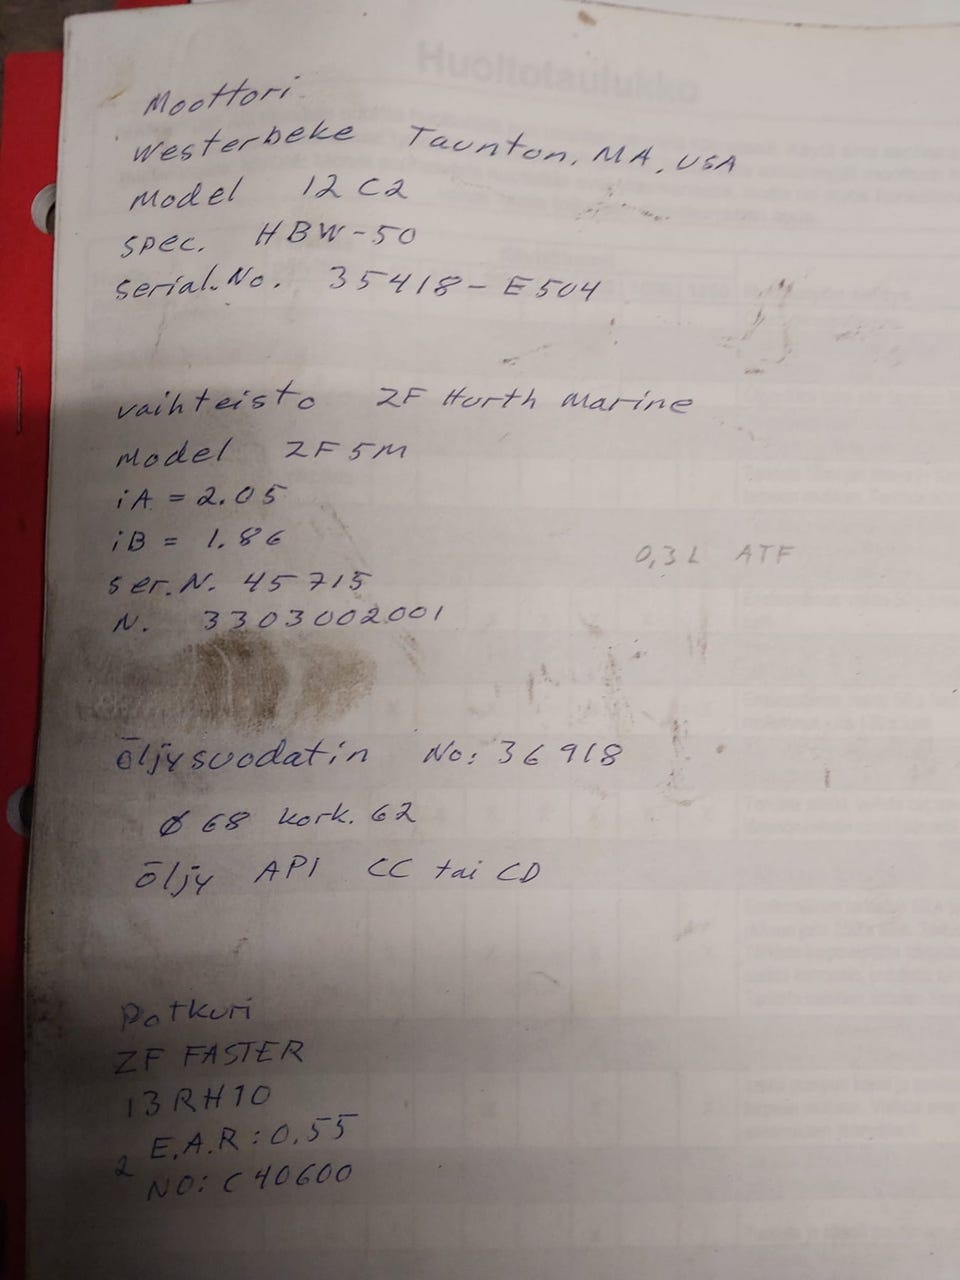 Huoltotaulukko
Moottori
Westerbeke Taunton, MA, USA
Model 12 C2
spec. HBW-50
serial.No. 35418-E504
vaihteisto ZF Hurth Marine
Model ZF5M
iA = 2.05
iB = 1.86
0,3 L ATF
ser.N. 45715
N. 3303002001
öljysuodatin No: 36918
Ø 68 kork. 62
öljy API CC tai CD
Potkuri
ZF FASTER
13RH10
E.A.R: 0.55
2
NO: C40600